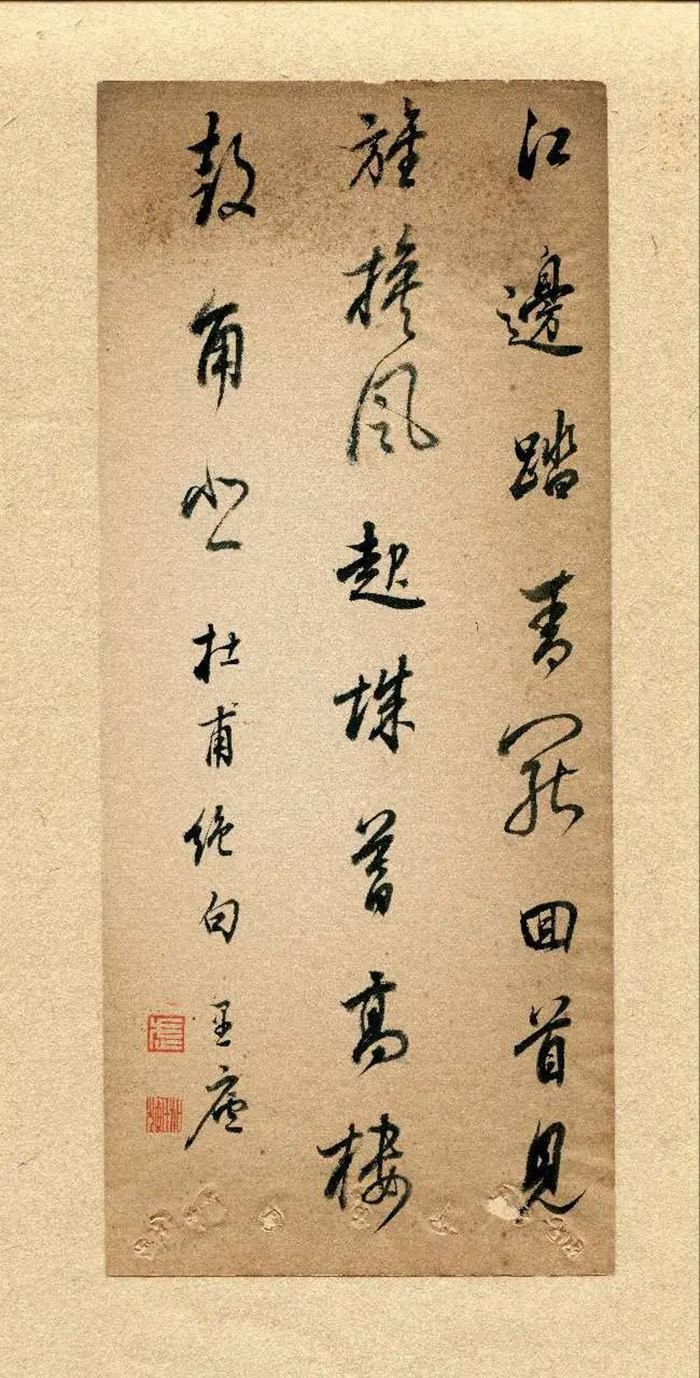 江邊踏青罷回首見
旌旗風起城暮高樓
鼓角悲 杜甫絕句 廬